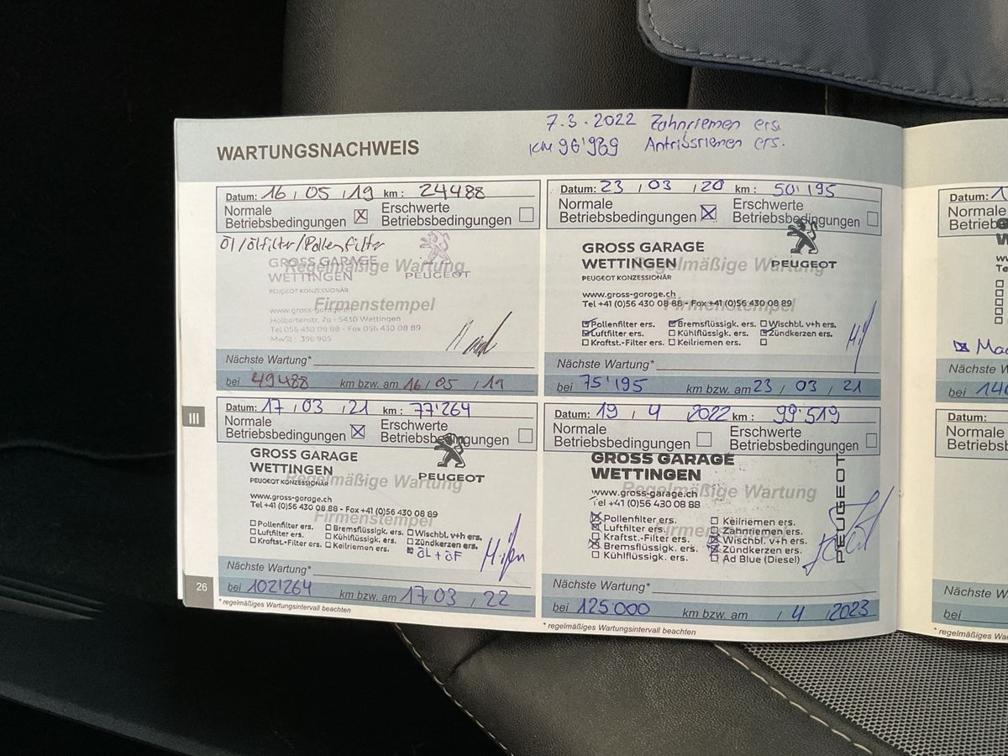 7.3.2022 Zahnriemen ers.
KM 96'989 Antribsriemen ers.
WARTUNGSNACHWEIS
Datum: 16 / 05 / 19 km: 24488
Normale Betriebsbedingungen ☒ Erschwerte Betriebsbedingungen ☐
Öl/Ölfilter/Pollenfilter
GROSS GARAGE
WETTINGEN
PEUGEOT KONZESSIONÄR
PEUGEOT
Regelmäßige Wartung
Firmenstempel
www.gross-garage.ch
Tel 056 430 08 88 - Fax 056 430 08 89
Nächste Wartung*
bei 49488 km bzw. am 16 / 05 /
Datum: 23 / 03 / 20 km: 50'195
Normale Betriebsbedingungen ☒ Erschwerte Betriebsbedingungen ☐
GROSS GARAGE
WETTINGEN
PEUGEOT KONZESSIONÄR
PEUGEOT
Regelmäßige Wartung
www.gross-garage.ch
Firmenstempel
Tel +41 (0)56 430 08 88 - Fax +41 (0)56 430 08 89
☒ Pollenfilter ers. ☒ Bremsflüssigk. ers. ☐ Wischbl. v+h ers.
☒ Luftfilter ers. ☐ Kühlflüssigk. ers. ☒ Zündkerzen ers.
☐ Kraftst.-Filter ers. ☐ Keilriemen ers. ☐
Nächste Wartung*
bei 75'195 km bzw. am 23 / 03 / 21
III
Datum: 17 / 03 / 21 km: 77'264
Normale Betriebsbedingungen ☒ Erschwerte Betriebsbedingungen ☐
GROSS GARAGE
WETTINGEN
PEUGEOT KONZESSIONÄR
PEUGEOT
Regelmäßige Wartung
www.gross-garage.ch
Tel +41 (0)56 430 08 88 - Fax +41 (0)56 430 08 89
Firmenstempel
☐ Pollenfilter ers. ☐ Bremsflüssigk. ers. ☐ Wischbl. v+h ers.
☐ Luftfilter ers. ☐ Kühlflüssigk. ers. ☐ Zündkerzen ers.
☐ Kraftst.-Filter ers. ☐ Keilriemen ers. ☒ ÖL + ÖF
Nächste Wartung*
bei 102'264 km bzw. am 17 03 / 22
26
* regelmäßiges Wartungsintervall beachten
Datum: 19 / 4 / 2022 km: 99'519
Normale Betriebsbedingungen ☐ Erschwerte Betriebsbedingungen ☐
GROSS GARAGE
WETTINGEN
PEUGEOT
Regelmäßige Wartung
www.gross-garage.ch
Tel +41 (0)56 430 08 88
Firmenstempel
☒ Pollenfilter ers. ☐ Keilriemen ers.
☒ Luftfilter ers. ☐ Zahnriemen ers.
☐ Kraftst.-Filter ers. ☒ Wischbl. v+h ers.
☒ Bremsflüssigk. ers. ☒ Zündkerzen ers.
☐ Kühlflüssigk. ers. ☐ Ad Blue (Diesel)
Nächste Wartung*
bei 125000 km bzw. am / 4 / 2023
* regelmäßiges Wartungsintervall beachten
Datum:
Normale
Nächste W
bei
Datum:
Normale
Betriebsbe
Nächste W
bei
* regelmäßiges Wa